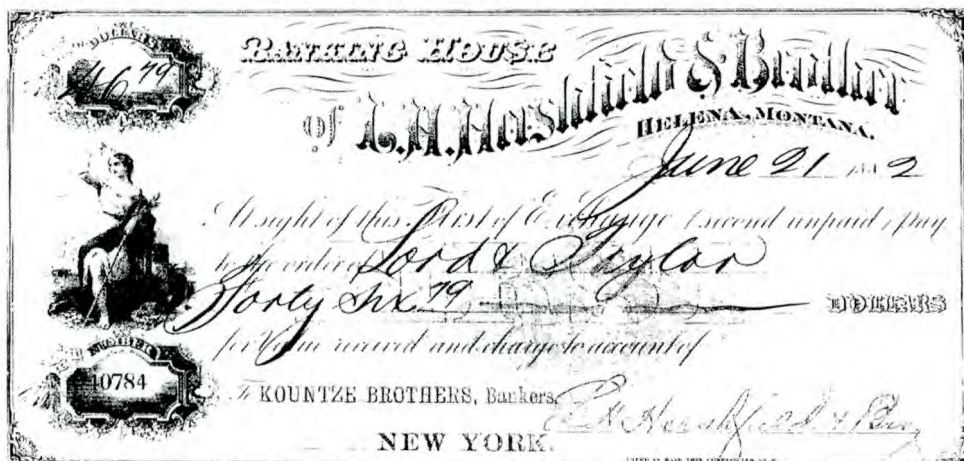 DOLLARS
46 79
BANKING HOUSE
of L.H. Hershfield & Brother
HELENA, MONTANA.
June 21 1882
At sight of this First of Exchange (second unpaid) pay
to the order of Lord & Taylor
Forty Six 79 DOLLARS
for Value received and charge to account of
NUMBER
10784
To KOUNTZE BROTHERS, Bankers,
L H Hershfield & Bro
NEW YORK.